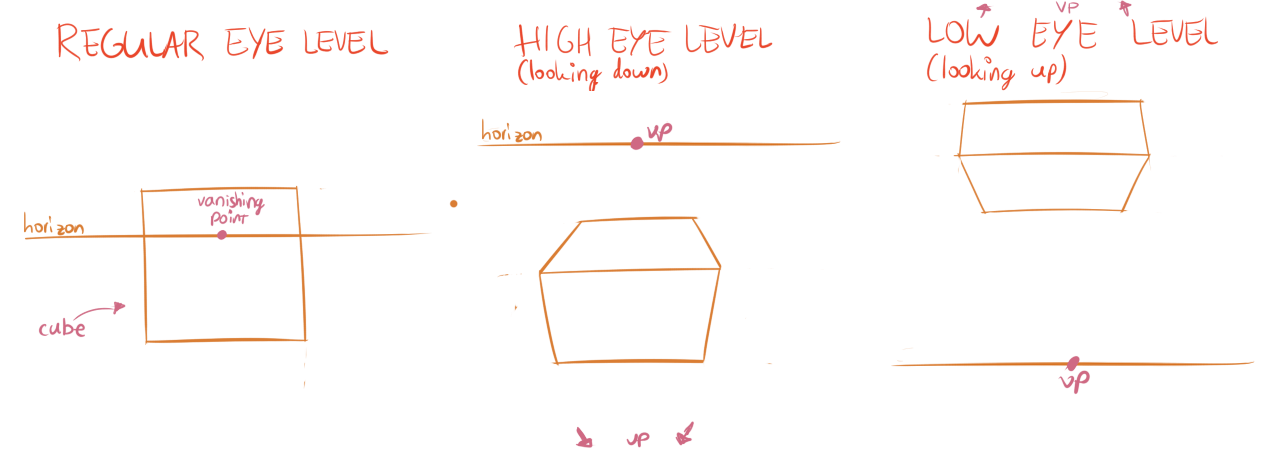 REGULAR EYE LEVEL
horizon
vanishing
point
cube
HIGH EYE LEVEL
(looking down)
horizon
VP
VP
VP
LOW EYE LEVEL
(looking up)
VP